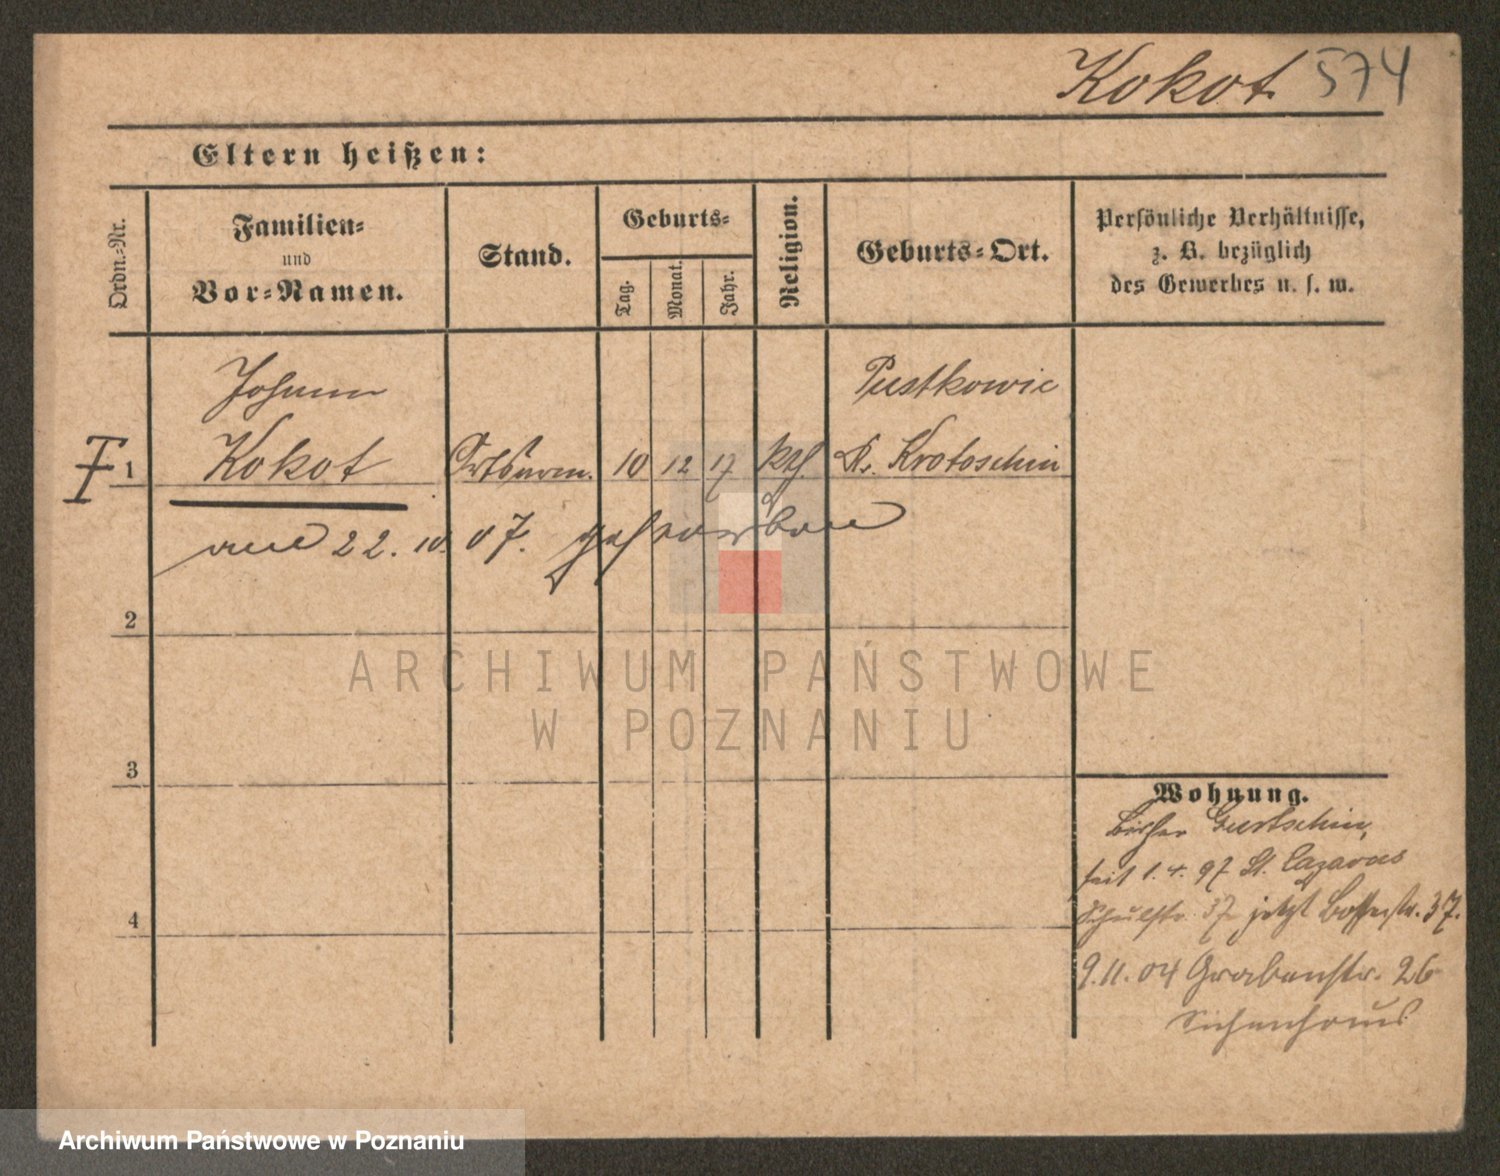 Kokot 574
Eltern heißen:
Ordn.-Nr.
Familien-
und
Vor-Namen.
Stand.
Geburts-
Tag.
Monat.
Jahr.
Religion.
Geburts-Ort.
Persönliche Verhältnisse,
z. B. bezüglich
des Gewerbes u. s. w.
Johann
Kokot
Ortsarm.
10 12 17
kth.
Pustkowie
Kr. Krotoschin
1
am 22. 10. 07. gestorben
2
3
4
Wohnung.
bisher Gurtschin,
seit 1. 4. 97 St. Lazarus
Schulstr. 37 jetzt 37.
9.11.04 Grabenstr. 26
Siechenhaus
ARCHIWUM PAŃSTWOWE
W POZNANIU
Archiwum Państwowe w Poznaniu